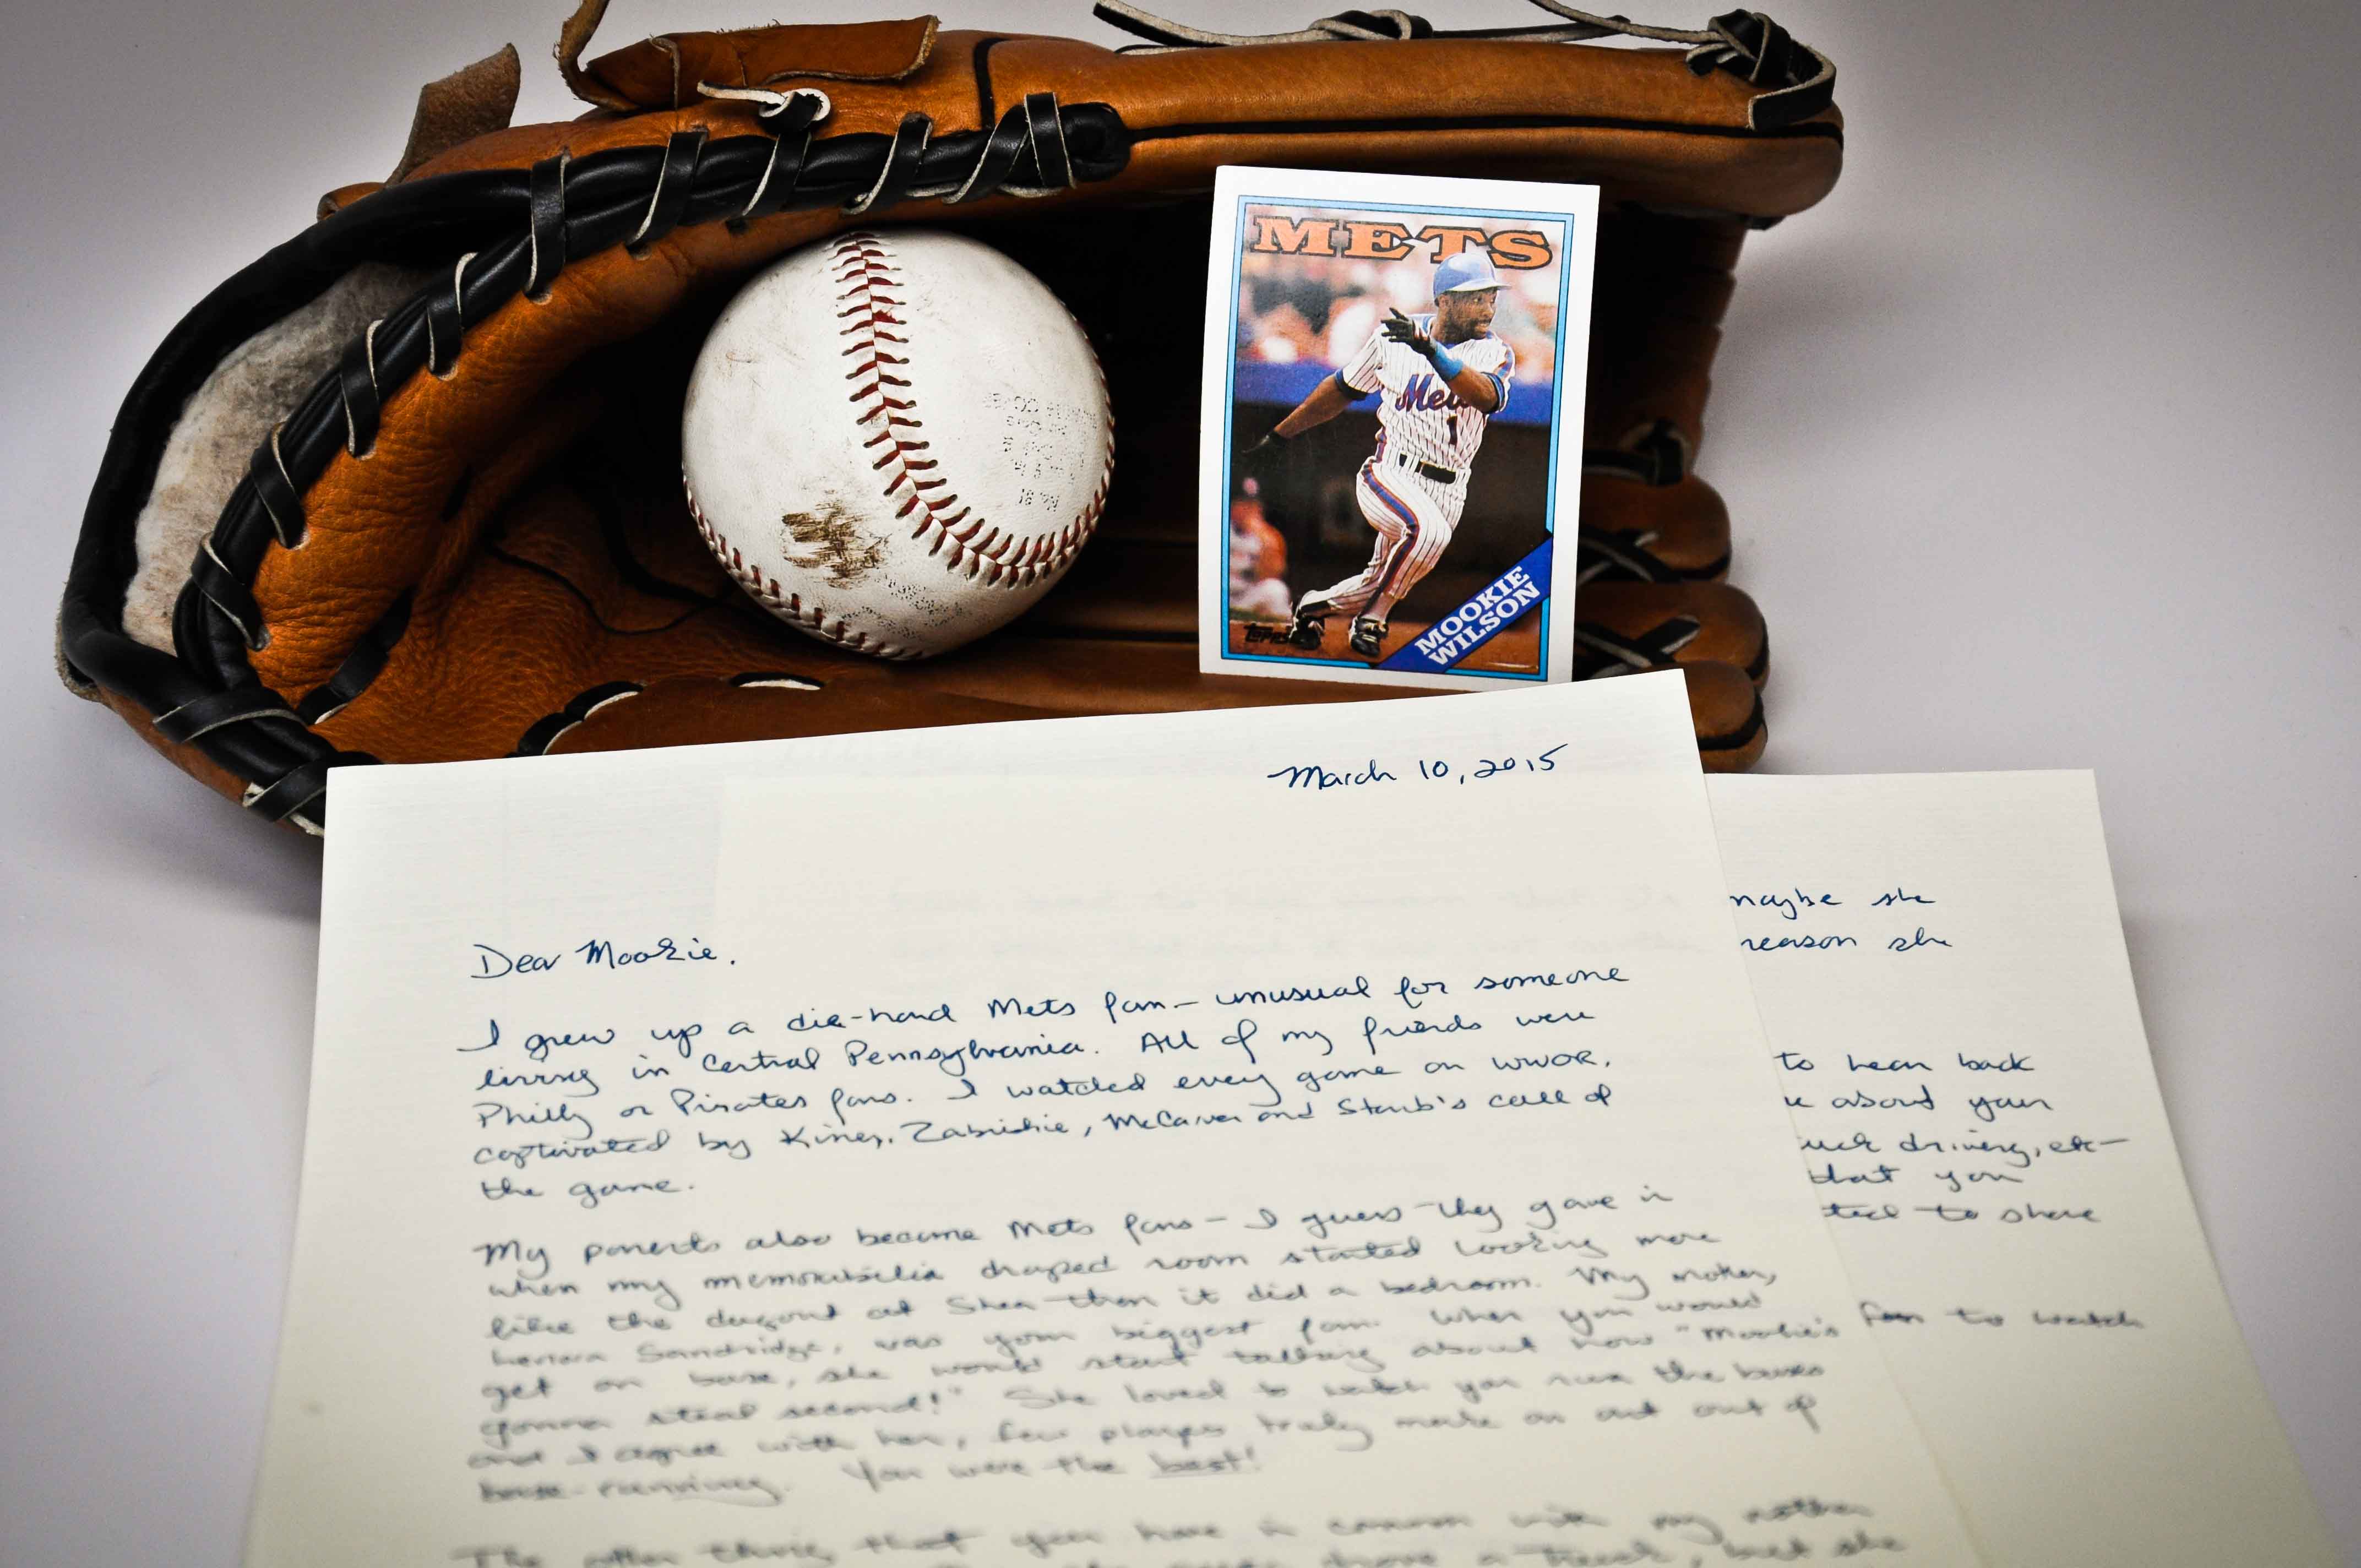 METS
Mets
1
MOOKIE
WILSON
Topps
March 10, 2015
Dear Mookie,
I grew up a die-hard Mets fan – unusual for someone
living in Central Pennsylvania. All of my friends were
Philly or Pirates fans. I watched every game on WWOR,
captivated by Kiner, Zabriskie, McCarver and Staub's call of
the game.
My parents also became Mets fans – I guess they gave in
when my memorabilia draped room started looking more
like the dugout at Shea than it did a bedroom. My mother,
Sandridge, was your biggest fan. When you would
get on base, she would start talking about how "Mookie's
gonna steal second!" She loved to watch you run the bases
and I agree with her, few players truly make an art out of
base-running. You were the best!
The other thing that you have in common with my mother
drove a truck, but she
maybe she
reason she
to hear back
about your
driving, etc –
that you
to share
fan to watch